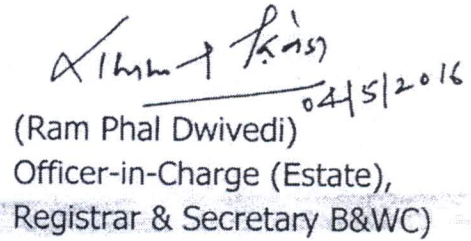 04/5/2016
(Ram Phal Dwivedi)
Officer-in-Charge (Estate),
Registrar & Secretary B&WC)